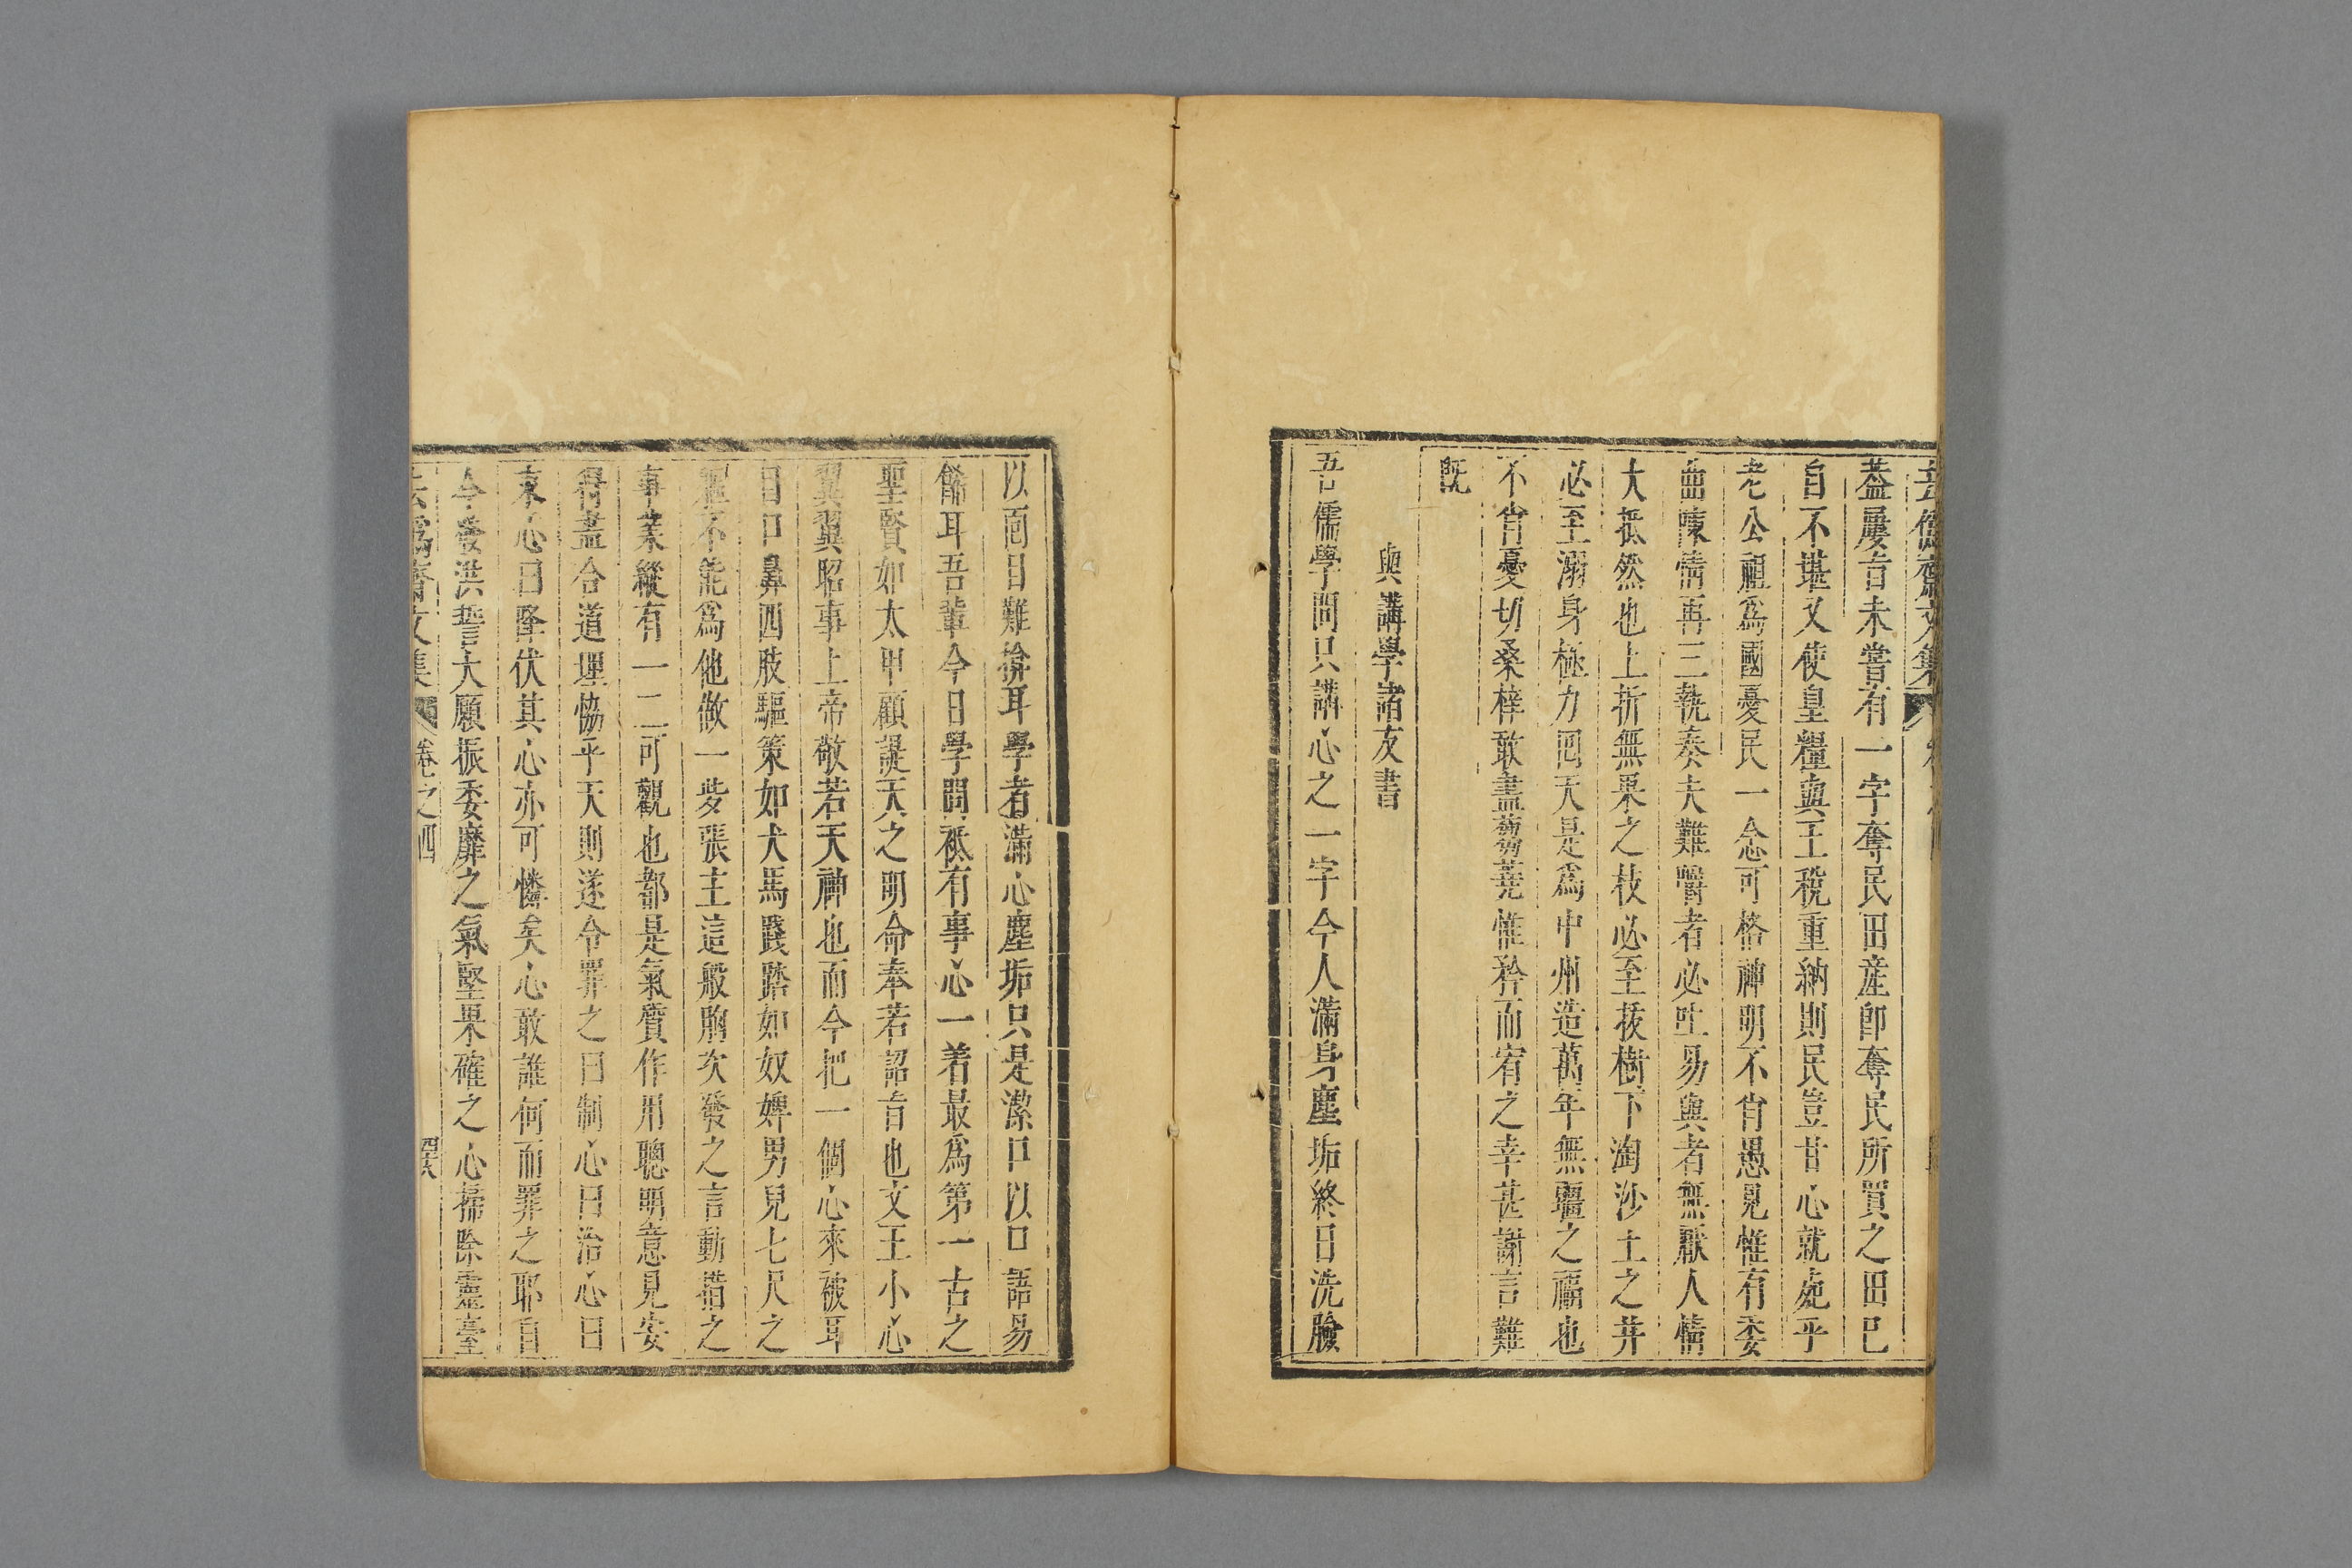 去偽齋文集
蓋屢旨未嘗有一字奪民田産卽奪民所買之田已
自不堪又使皇糧與王稅重納則民豈甘心就死乎
老公祖爲國憂民一念可格神明不肖愚見惟有委
曲陳情再三執奏夫難嚼者必吐易與者無厭人情
大抵然也上折無果之枝必至拔樹下淘沙土之井
必至溺身極力囘天是爲中州造萬年無疆之福也
不肖憂切桑梓敢盡蒭蕘惟矜而宥之幸甚謝言難
旣
與講學諸友書
吾儒學問只講心之一字今人滿身塵垢終日洗臉
以面目難掩耳學者滿心塵垢只是潔口以口語易
餙耳吾輩今日學問秪有事心一着最爲第一古之
聖賢如太甲顧諟天之明命奉若詔旨也文王小心
翼翼昭事上帝敬若天神也而今把一個心來被耳
目口鼻四肢驅策如犬馬踐踏如奴婢男兒七尺之
軀不能爲他做一些張主這般胸次發之言動措之
事業縱有一二可觀也都是氣質作用聰明意見安
得盡合道理恊乎天則遂令罪之曰制心曰治心曰
束心曰降伏其心亦可憐矣心敢誰何而罪之耶自
今發洪誓大願振委靡之氣堅果確之心掃除靈臺
去偽齋文集 卷之四